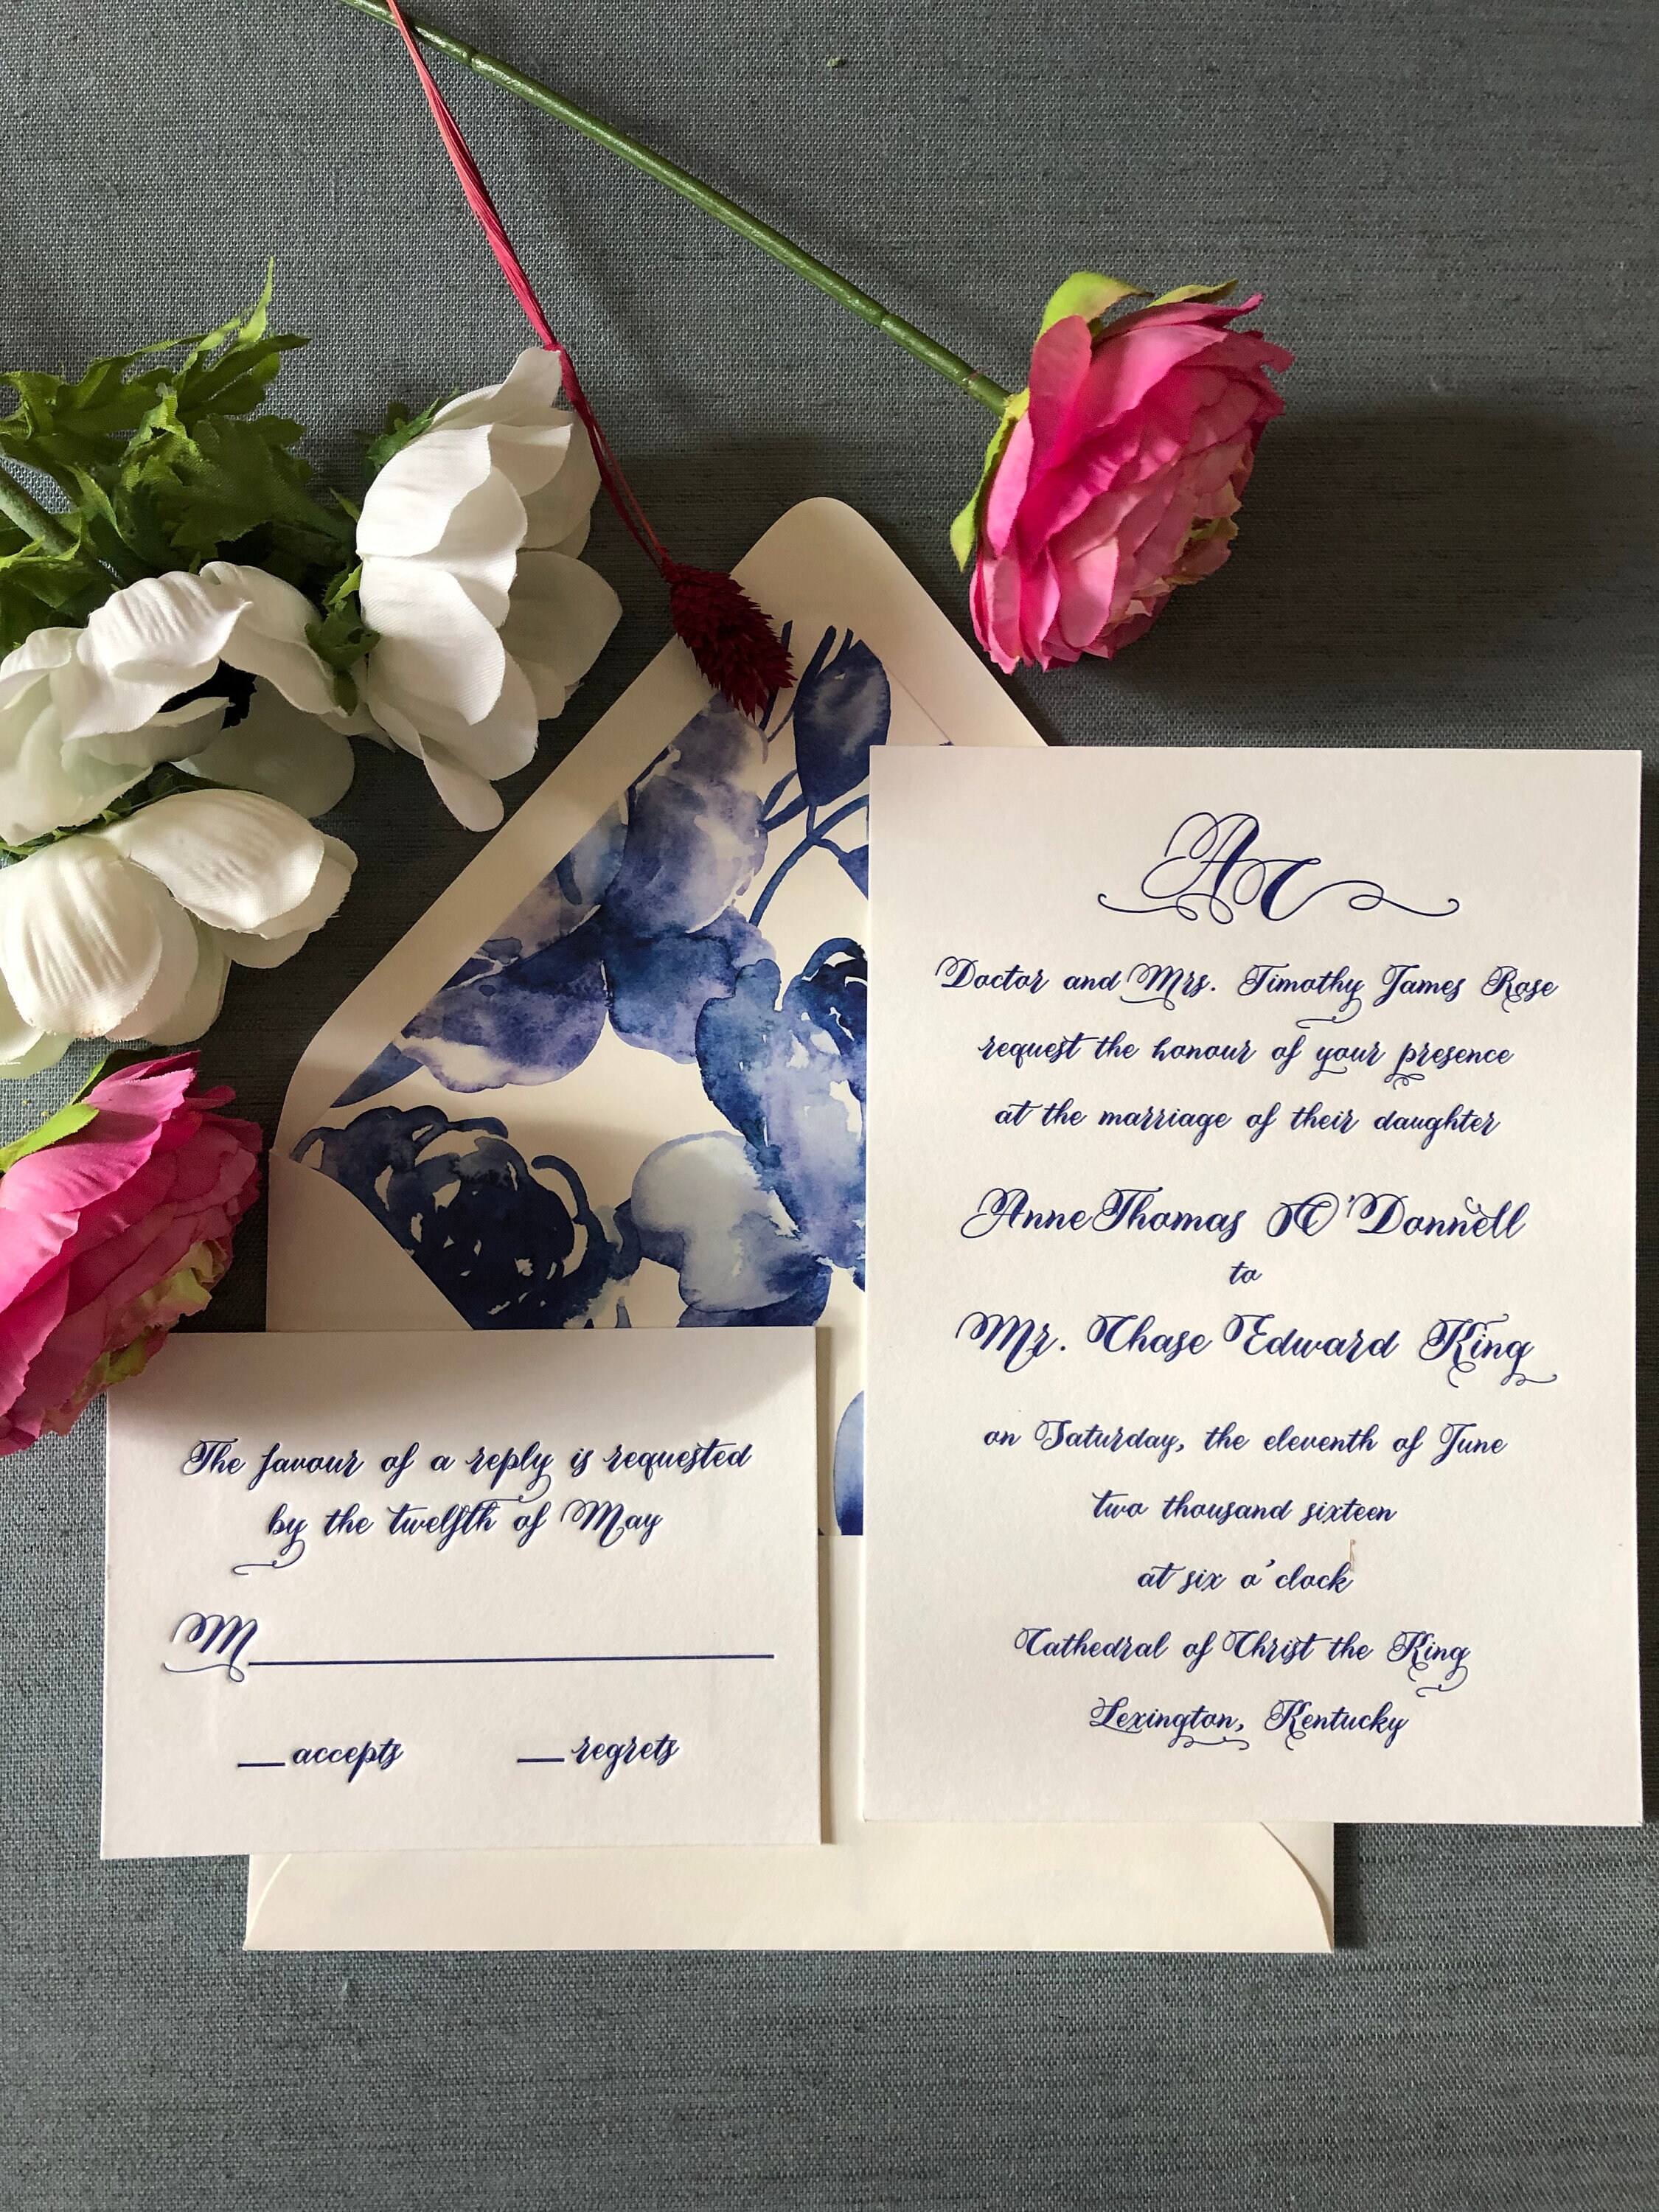 The favour of a reply is requested
by the twelfth of May
M
accepts regrets
AC
Doctor and Mrs. Timothy James Rose
request the honour of your presence
at the marriage of their daughter
Anne Thomas O'Donnell
to
Mr. Chase Edward King
on Saturday, the eleventh of June
two thousand sixteen
at six o'clock
Cathedral of Christ the King
Lexington, Kentucky